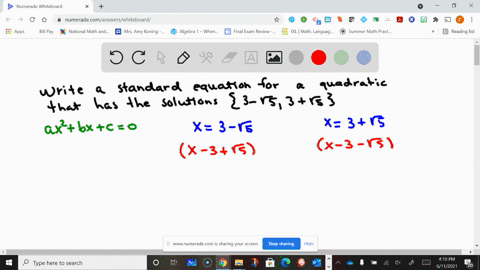 Numerade
numerade.com/answers/whiteboard/
Apps
Bill Pay
National Math and...
Mrs. Amy Koning -...
Algebra 1 - When...
Final Exam Review -...
IXL | Math, Languag...
Summer Math Pack...
Reading list
Write a standard equation for a quadratic
that has the solutions {3-√5, 3+√5}
ax²+bx+c=0
x = 3-√5
x = 3+√5
(x-3+√5)
(x-3-√5)
www.numerade.com is sharing your screen.
Stop sharing
Hide
Type here to search
4:10 PM
6/11/2021